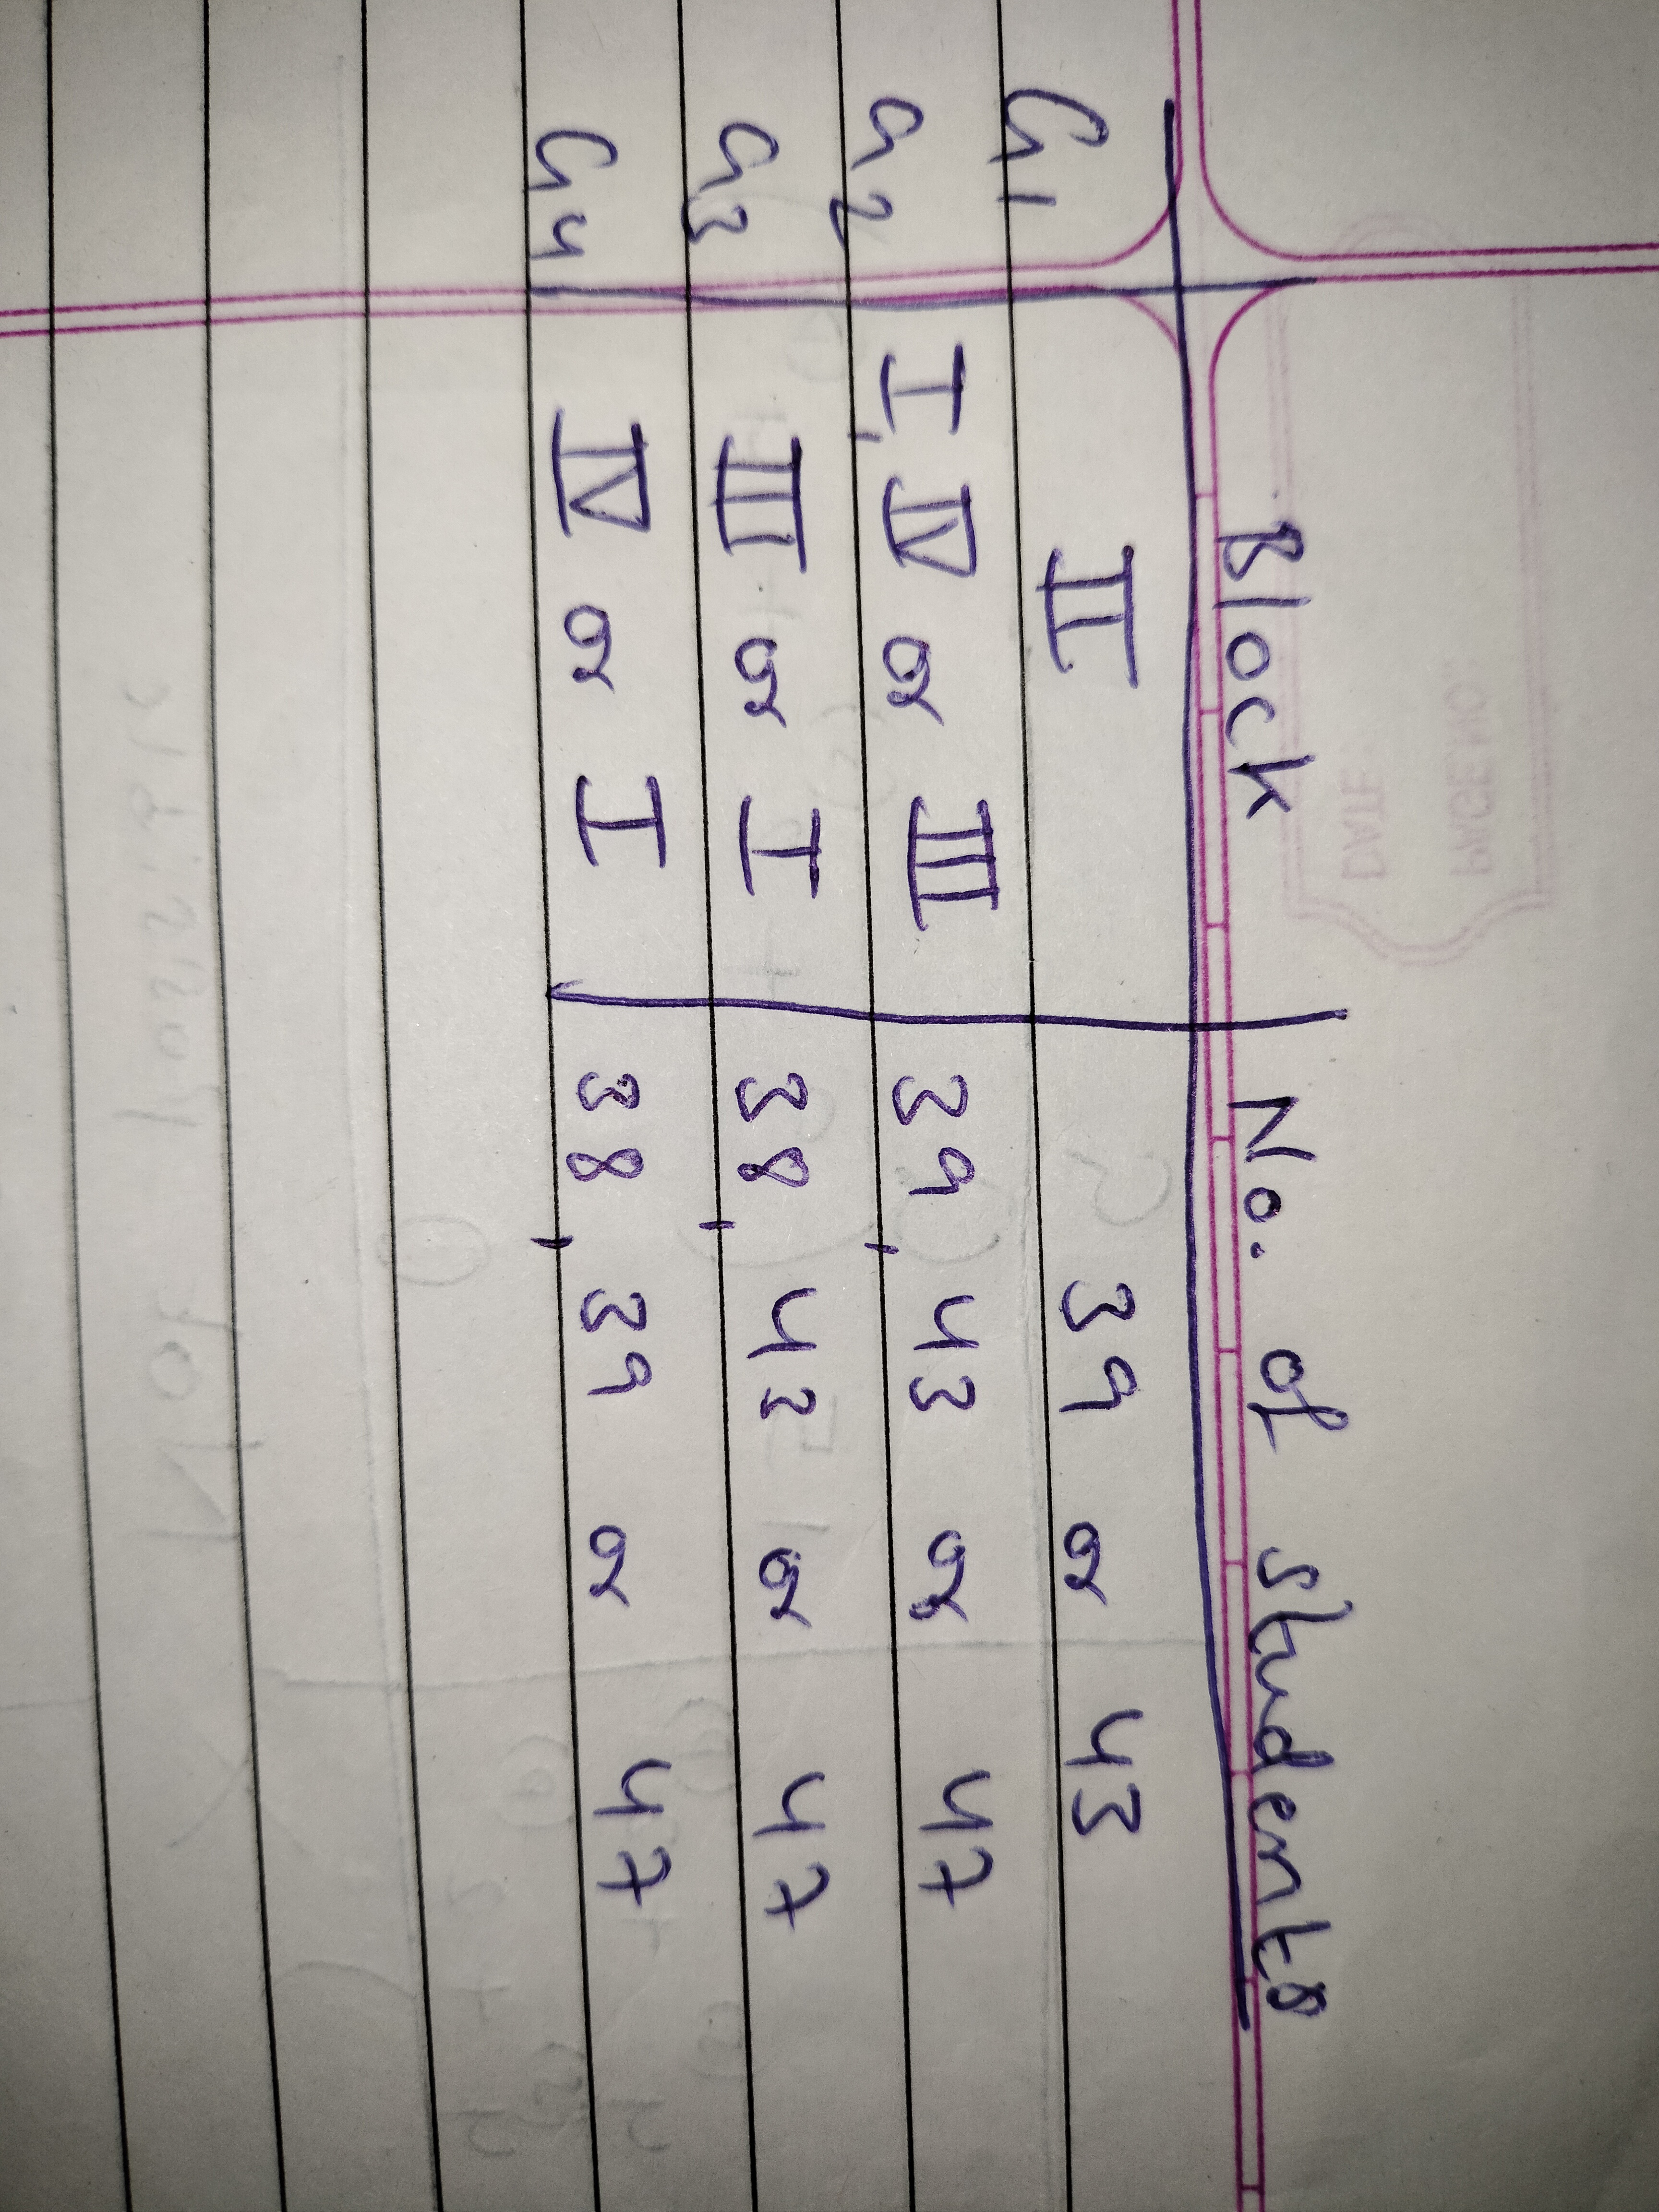 Block No. of students
G1 II 39 or 43
G2 I, IV or III 39, 43 or 47
G3 III or I 38, 43 or 47
G4 IV or I 38, 39 or 47